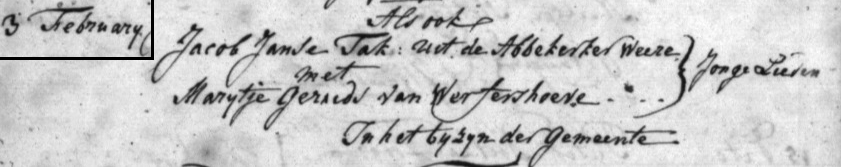 3 February
Als ook
Jacob Janse Tak: uit de Abbekerker Weere
met
Jonge Lieden
Marytje Gerrids van Werfershoeve
In het byzyn der Gemeente